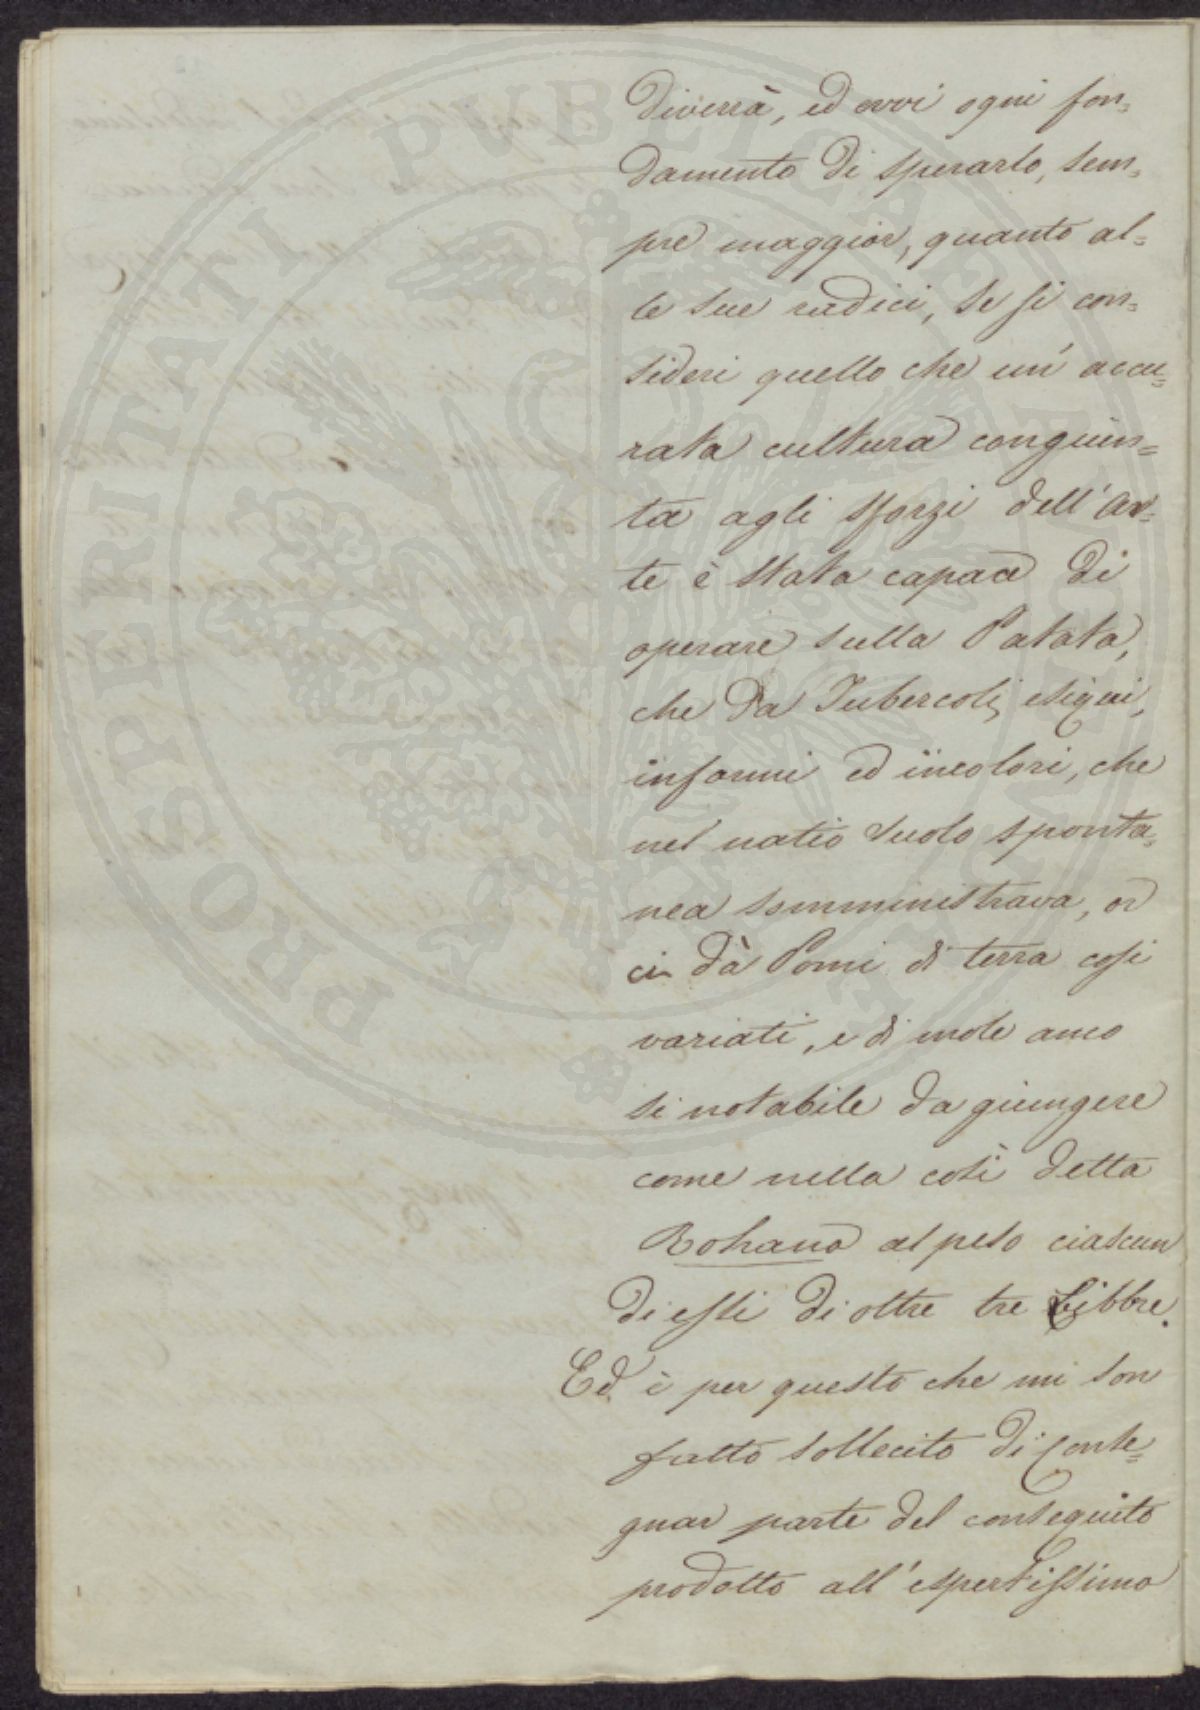 diverrà, ed evvi ogni fon=
damento di sperarlo, sem=
pre maggior, quanto al=
le sue radici, se si con=
sideri quello che un' accu=
rata cultura congiun=
ta agli sforzi dell' Ar=
te è stata capace di
operare sulla Patata,
che da Tubercoli esigui,
informi ed incolori, che
nel natio suolo sponta=
nea somministrava, or
ci dà Pomi di terra così
variati, e di mole anco
si notabile da giungere
come nella così detta
Rohano al peso ciascun
di essi di oltre tre Libbre.
Ed è per questo che mi son
fatto sollecito di conse=
gnar parte del conseguito
prodotto all' espertissimo
PROSPERITATI PUBLICAE AUGENDAE